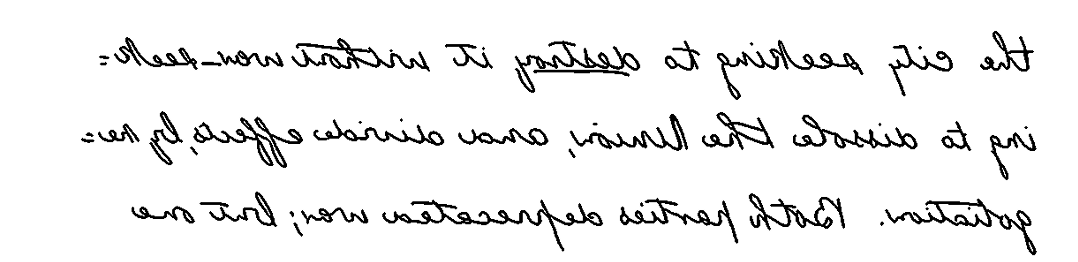 the city seeking to destroy it without war-seek=
ing to dissole the Union, and divide effects, by ne=
gotiation. Both parties deprecated war; but one